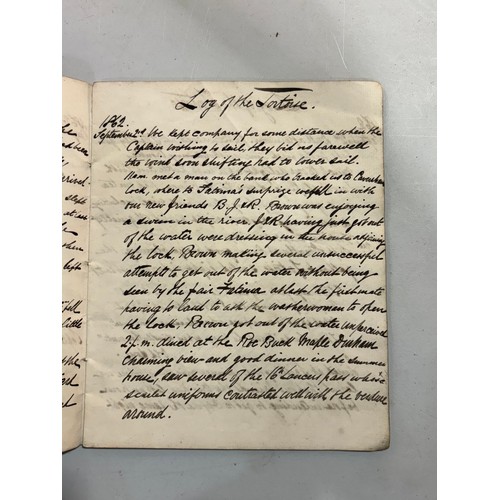 Log of the Tortoise.
1862.
September 2d. We kept company for some distance when the
Captain wishing to sail, they bid us farewell
the wind soon shifting had to lower sail.
11am met a man on the bank who tracked us to Caversham
lock, where to Fatima's surprize we fell in with
our new friends B. J & R. Brown was enjoying
a swim in the river J & R having just got out
of the water were dressing in the house adjoining
the lock. Brown making several unsuccessful
attempts to get out of the water without being
seen by the fair Fatima at last the first mate
having to land to ask the washerwoman to open
the lock. Brown got out of the water unperceived
2 p.m. dined at the Roe Buck Maple Durham
charming view and good dinner in the summer
house, saw several of the 16 Lancers pass whose
scarlet uniforms contrasted well with the verdure
around.